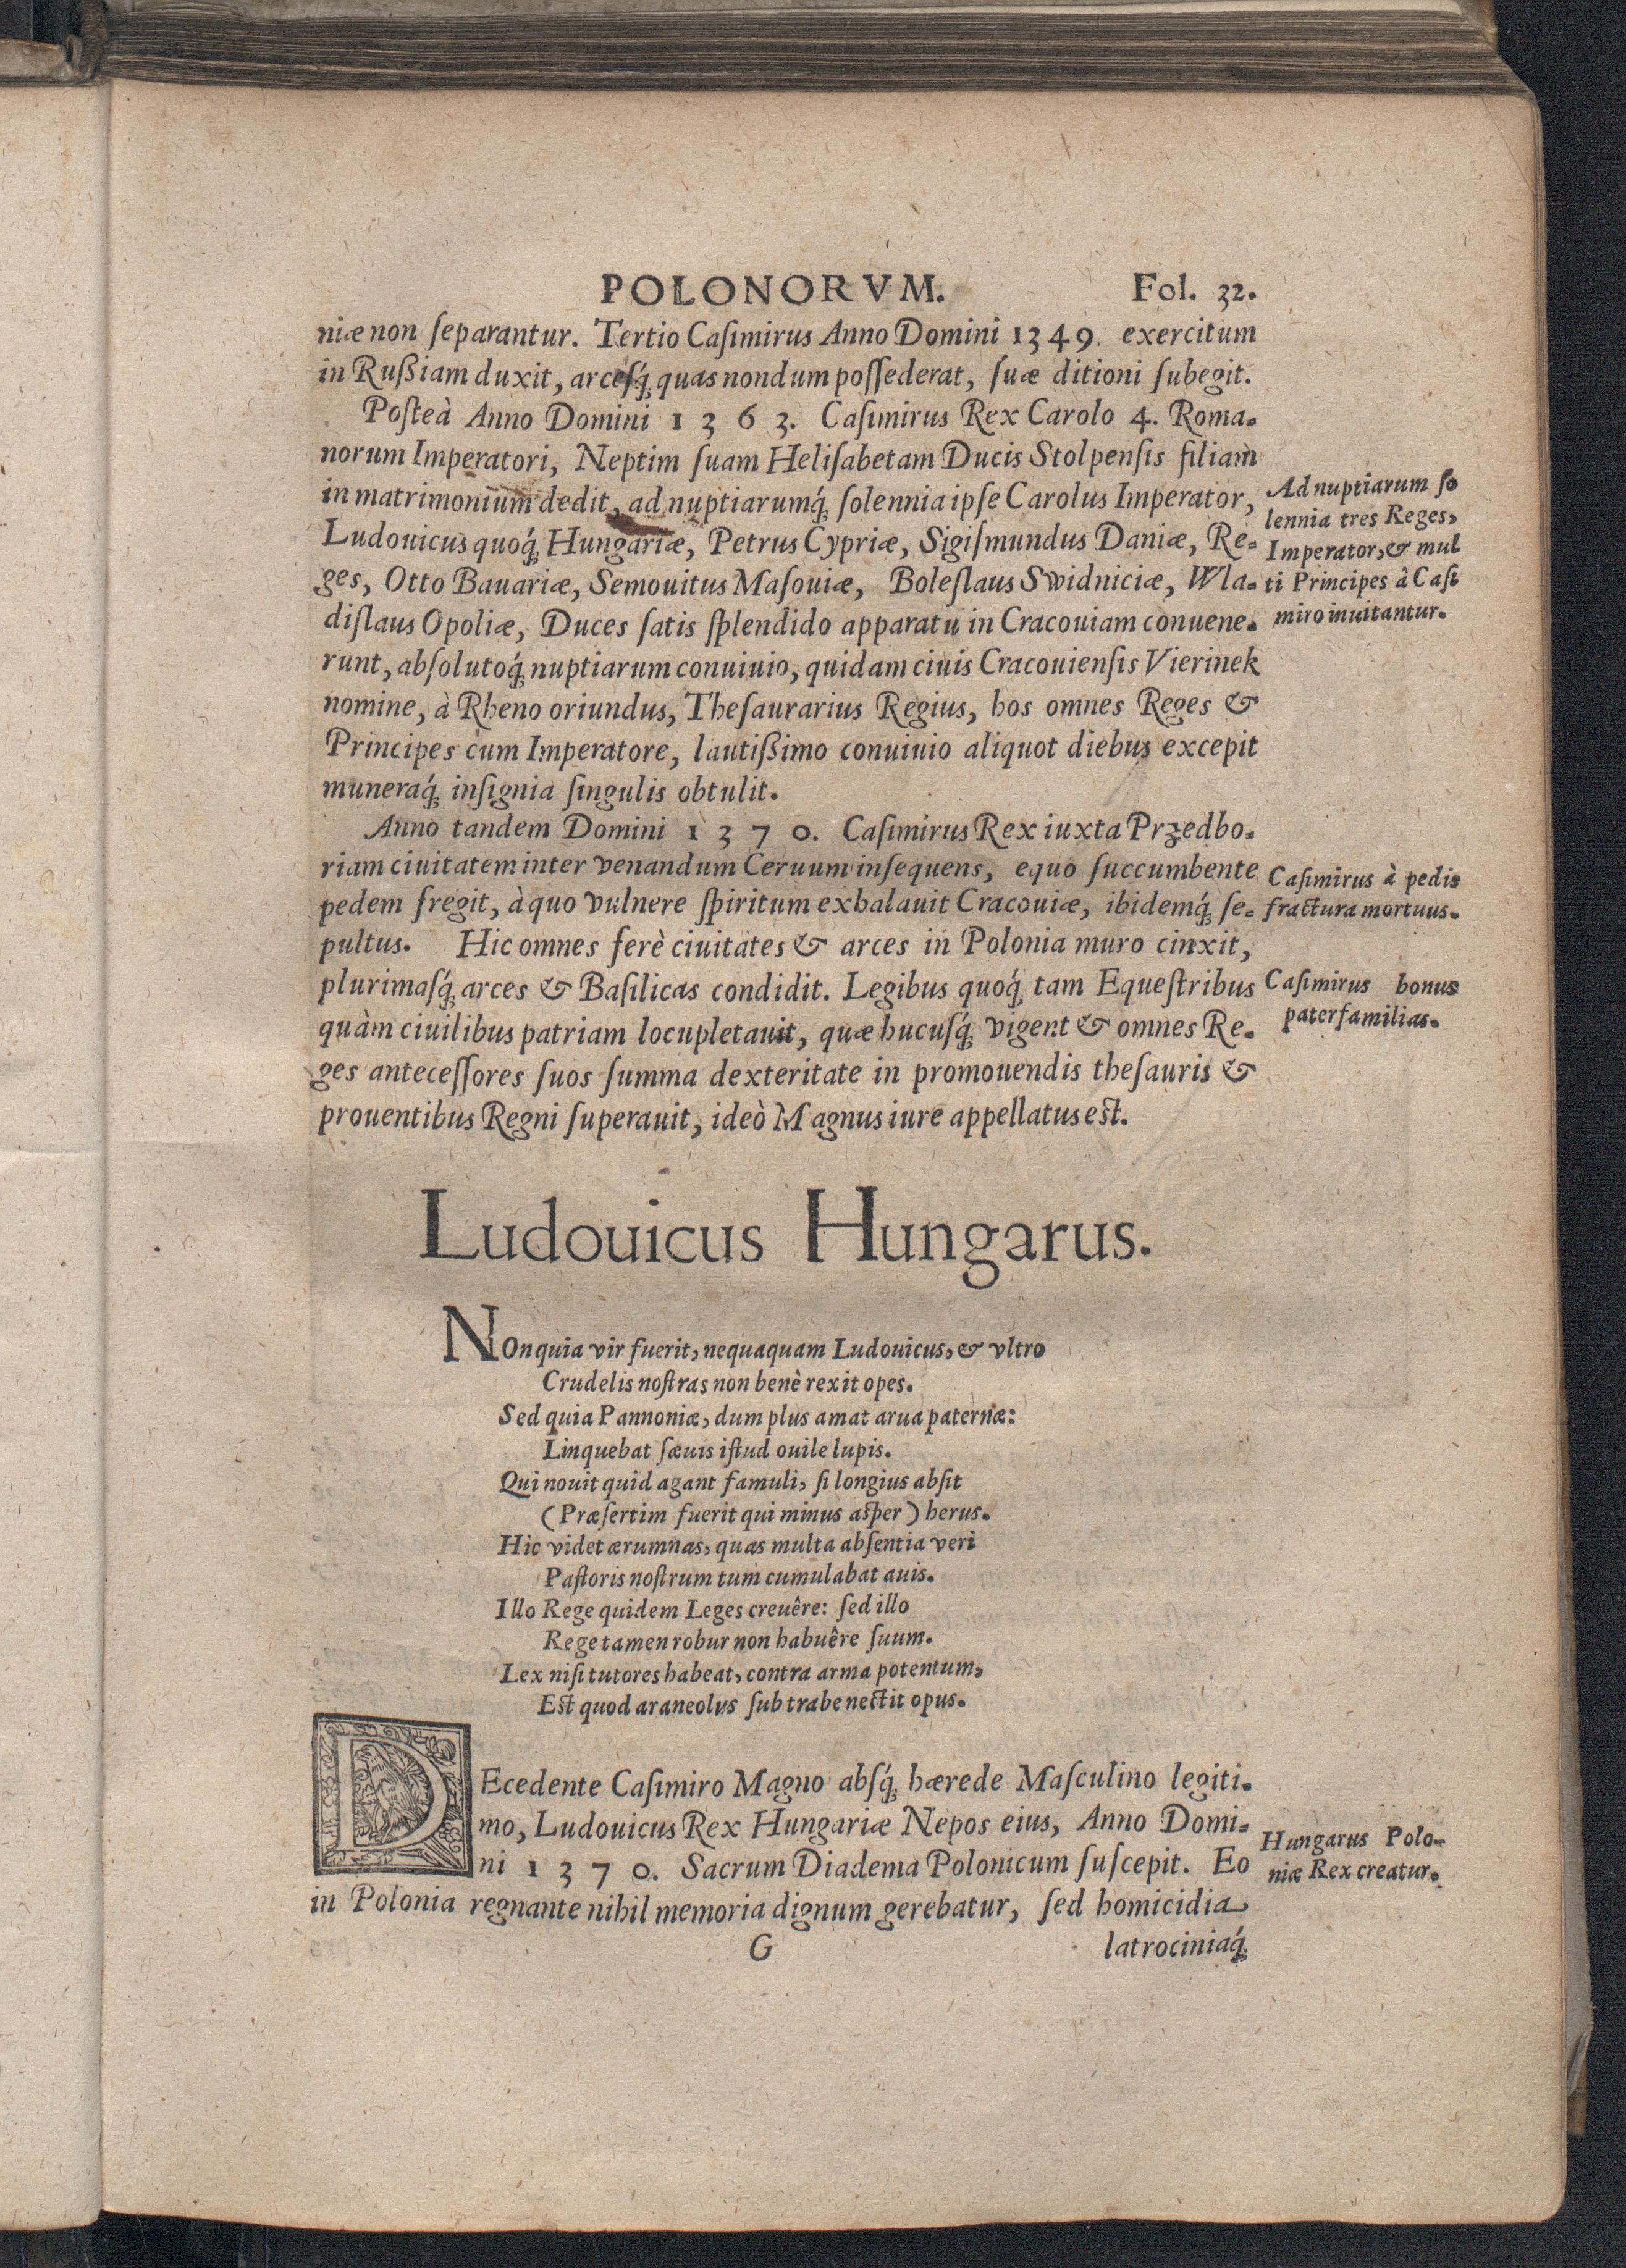 POLONORVM. Fol. 32.
niæ non ſeparantur. Tertio Caſimirus Anno Domini 1349. exercitum
in Rußiam duxit, arceſq́; quas nondum poſſederat, ſuæ ditioni ſubegit.
Poſteà Anno Domini 1 3 6 3. Caſimirus Rex Carolo 4. Roma-
norum Imperatori, Neptim ſuam Heliſabetam Ducis Stolpenſis filiam
in matrimonium dedit, ad nuptiarumq́; ſolennia ipſe Carolus Imperator,
Ludouicus quoq́; Hungariæ, Petrus Cypriæ, Sigiſmundus Daniæ, Re-
ges, Otto Bauariæ, Semouitus Maſouiæ, Boleſlaus Swidniciæ, Wla-
diſlaus Opoliæ, Duces ſatis ſplendido apparatu in Cracouiam conuene-
runt, abſolutoq́; nuptiarum conuiuio, quidam ciuis Cracouienſis Vierinek
nomine, à Rheno oriundus, Theſaurarius Regius, hos omnes Reges &
Principes cum Imperatore, lautißimo conuiuio aliquot diebus excepit
muneraq́; inſignia ſingulis obtulit.
Ad nuptiarum ſo
lennia tres Reges,
Imperator, & mul
ti Principes à Caſi
miro inuitantur.
Anno tandem Domini 1 3 7 0. Caſimirus Rex iuxta Przedbo-
riam ciuitatem inter venandum Ceruum inſequens, equo ſuccumbente
pedem fregit, à quo vulnere ſpiritum exhalauit Cracouiæ, ibidemq́; ſe-
pultus. Hic omnes ferè ciuitates & arces in Polonia muro cinxit,
plurimaſq́; arces & Baſilicas condidit. Legibus quoq́; tam Equeſtribus
quàm ciuilibus patriam locupletauit, quæ hucuſq́; vigent & omnes Re-
ges anteceſſores ſuos ſumma dexteritate in promouendis theſauris &
prouentibus Regni ſuperauit, ideò Magnus iure appellatus est.
Caſimirus à pedis
fractura mortuus.
Caſimirus bonus
paterfamilias.
Ludouicus Hungarus.
NOn quia vir fuerit, nequaquam Ludouicus, & vltro
Crudelis noſtras non benè rexit opes.
Sed quia Pannoniæ, dum plus amat arua paternæ:
Linquebat ſæuis iſtud ouile lupis.
Qui nouit quid agant famuli, ſi longius abſit
(Præſertim fuerit qui minus aſper) herus.
Hic videt ærumnas, quas multa abſentia veri
Paſtoris noſtrum tum cumulabat auis.
Illo Rege quidem Leges creuêre: ſed illo
Rege tamen robur non habuêre ſuum.
Lex niſi tutores habeat, contra arma potentum,
Est quod araneolus ſub trabe nectit opus.
DEcedente Caſimiro Magno abſq́; hærede Maſculino legiti-
mo, Ludouicus Rex Hungariæ Nepos eius, Anno Domi-
ni 1 3 7 0. Sacrum Diadema Polonicum ſuſcepit. Eo
in Polonia regnante nihil memoria dignum gerebatur, ſed homicidia
Hungarus Polo-
niæ Rex creatur.
G latrociniaq́;